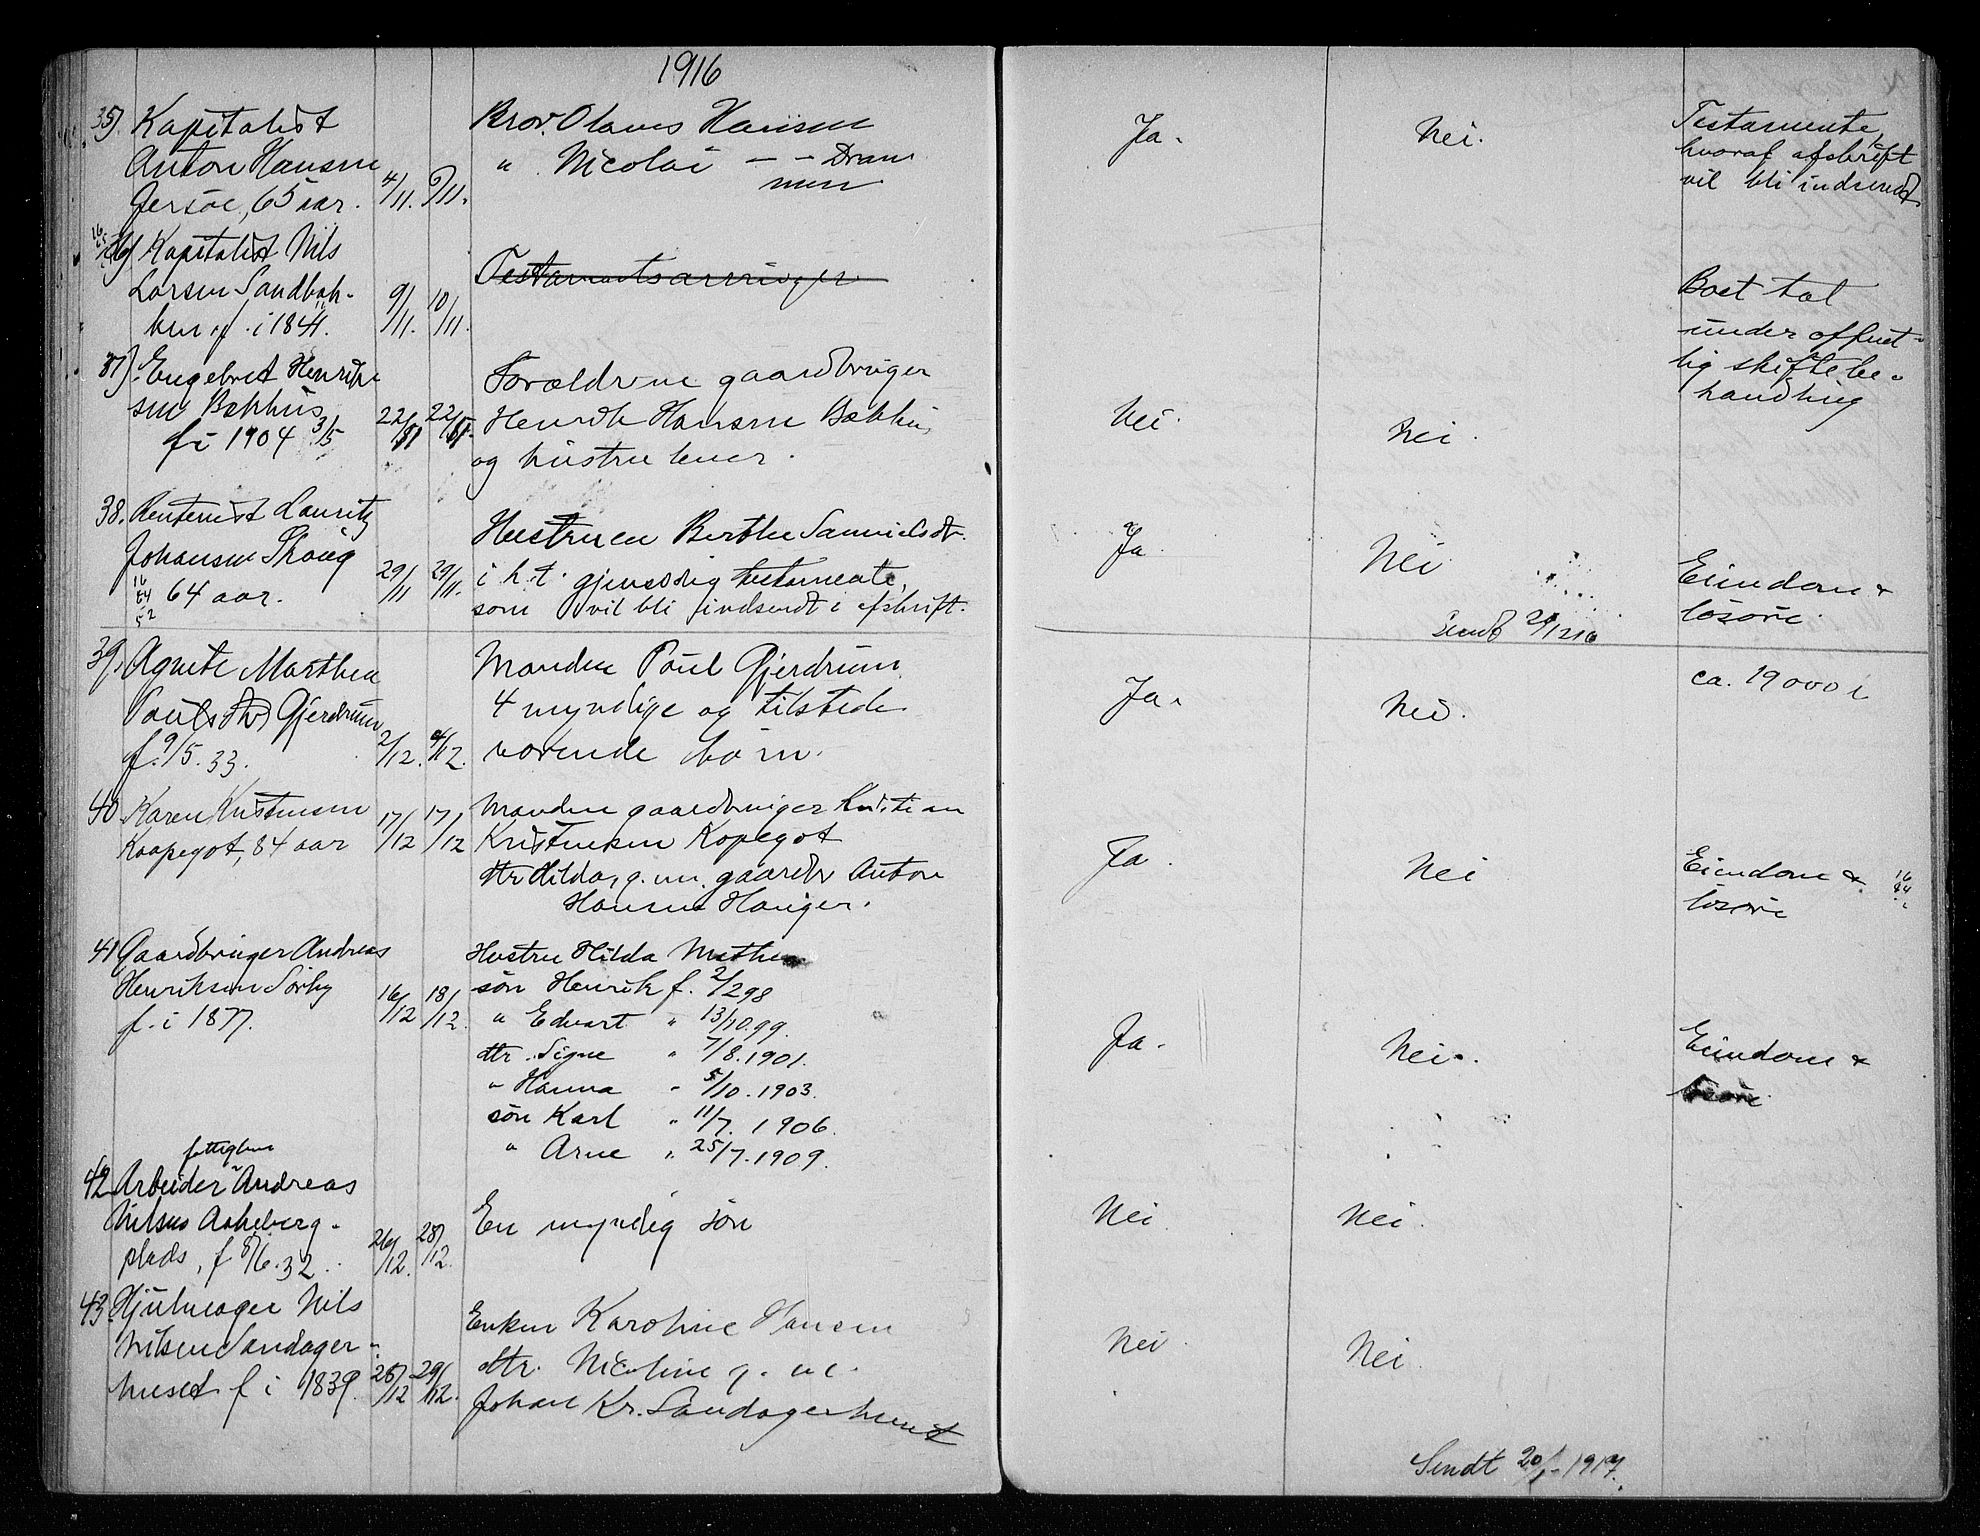 1916
35). Kapitalist
Anton Hansen
Jersøe, 65 aar.
4/11.
Bror. Olaves Hansen
" Nicolai — — Dram
men
Ja.
Nei.
Testamente,
hvoraf afskrift
vil bli indsendt
36) Kapitalist Nils
Larsen Sandbæk-
ken, f. i 1841.
9/11. 10/11.
Testamentsarvinger
Boet tat
under offent-
lig skiftebe-
handling
37). Engebret Henrik
sen Bækhus
f i 1904 3/5
22/11 22/11.
Forældrene gaardbruger
Henrik Hansen Bækhus
og hustru lever.
Nei.
Nei.
38. Rentenist Lauritz
Johansen Skaug
64 aar.
29/11 29/11.
Hustruen Berthe Samuelsdt.
i h.t. gjensidig testamente,
som vil bli indsendt i afskrift.
Ja.
Nei
Eiendom &
løsøre.
Sendt 21/12 16
39. Agnete Marthea
Paulsdtr Gjerdrum
f. 9/5. 33.
2/12. 4/12.
Manden Poul Gjerdrum
4 myndige og tilstede
værende børn.
Ja.
Nei.
ca. 19000
40. Karen Kristensen
Kaapegot, 84 aar
17/12 17/12
Manden gaardbruger Kristian
Kristensen Kopegot
dtr Hilda, g. m. gaardbr Anton
Hansen Hauger.
Ja.
Nei
Eiendom &
løsøre
41 Gaardbruger Andreas
Henriksen Sørby
f. i 1877.
16/12 18/12.
Hustru Hilda Mathea
søn Henrik f. 2/2 98
" Edvart " 13/10.99.
dtr. Signe " 7/8.1901.
" Hanna " 5/10.1903.
søn Karl " 11/7. 1906.
" Arne " 25/7.1909.
Ja.
Nei.
Eiendom &
løsøre.
fattiglem
42 Arbeider Andreas
Nilsen Askeberg-
plads, f 8/6.32
26/12. 28/12.
En myndig søn
Nei.
Nei.
43 Hjulmager Nils
Nilsen Sandager-
huset f i 1839.
26/12 29/12.
Enken Karoline Hansen
dtr. Nicoline g. m.
Johan Kr. Sandagerhuset
Nei.
Nei.
Sendt 20/1-1917.